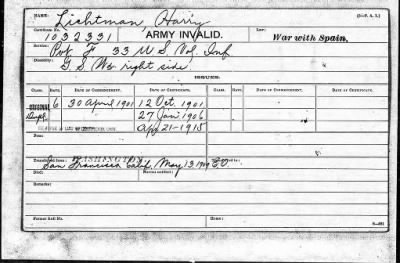 NAME: Lichtman, Harry (3-C. P. A. I.)
Certificate No. 1032331 ARMY INVALID. Law: War with Spain.
Service: Pvt F 33 U S Vol. Inf.
Disability: G. S. W. right side
ISSUES:
CLASS. RATE. DATE OF COMMENCEMENT. DATE OF CERTIFICATE. CLASS. RATE. DATE OF COMMENCEMENT. DATE OF CERTIFICATE.
ORIGINAL 6 30 April 1901 12 Oct. 1901
Dupl. 27 Jan 1906
Apr 21-1915
From:
Transferred from WASHINGTON
San Francisco Calif. May 13 1909
Died: Bureau notified:
Remarks:
Former Roll No.